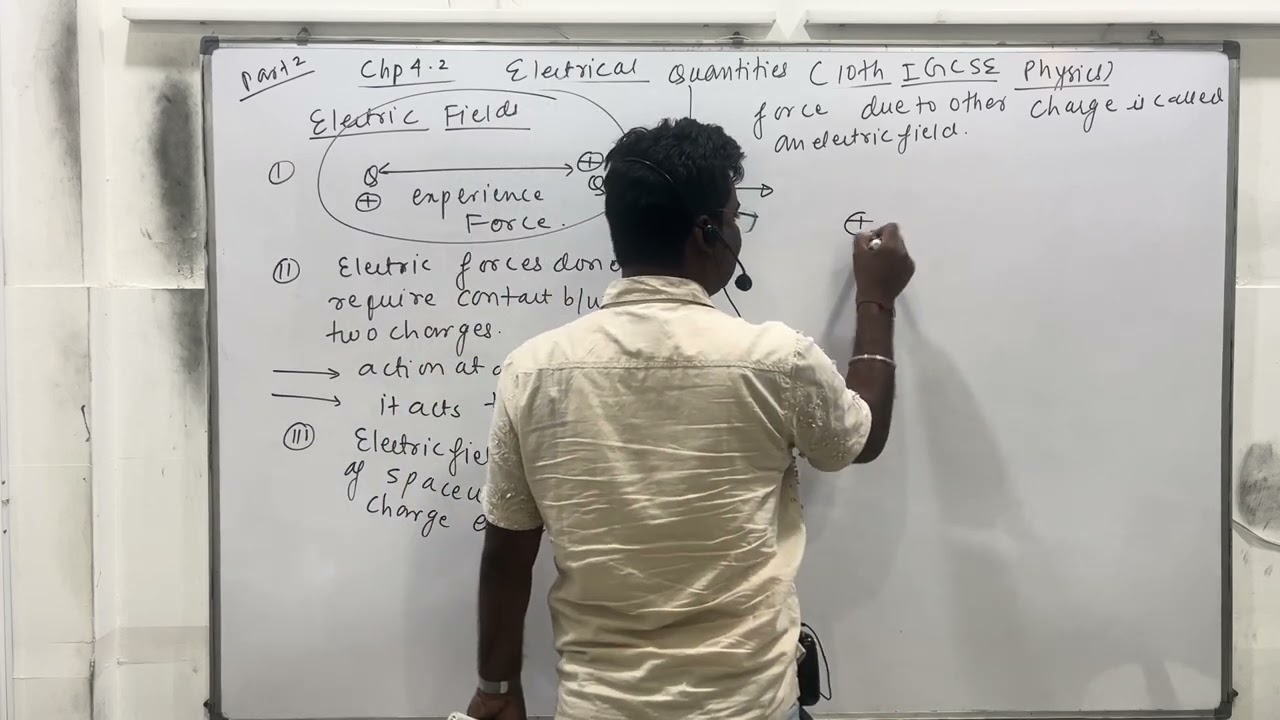 Part 2
Chp 4.2 Electrical Quantities (10th IGCSE Physics)
Electric Fields
force due to other charge is called
an electric field.
I
Q +
+ Q
experience
Force.
II Electric forces
require contact b/w
two charges.
→ action at
→ it acts
III Electric
of space
charge
+